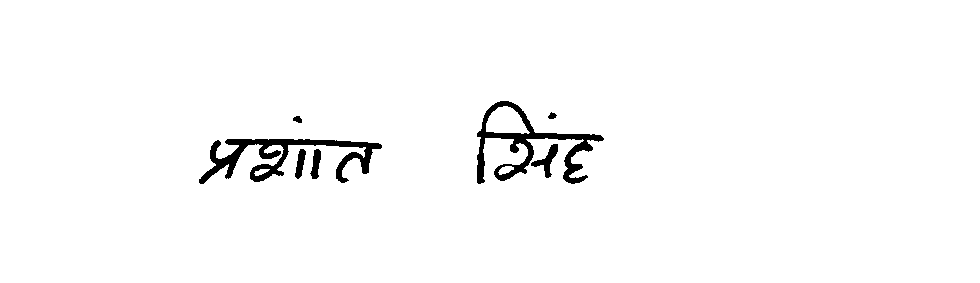 प्रशांत सिंह